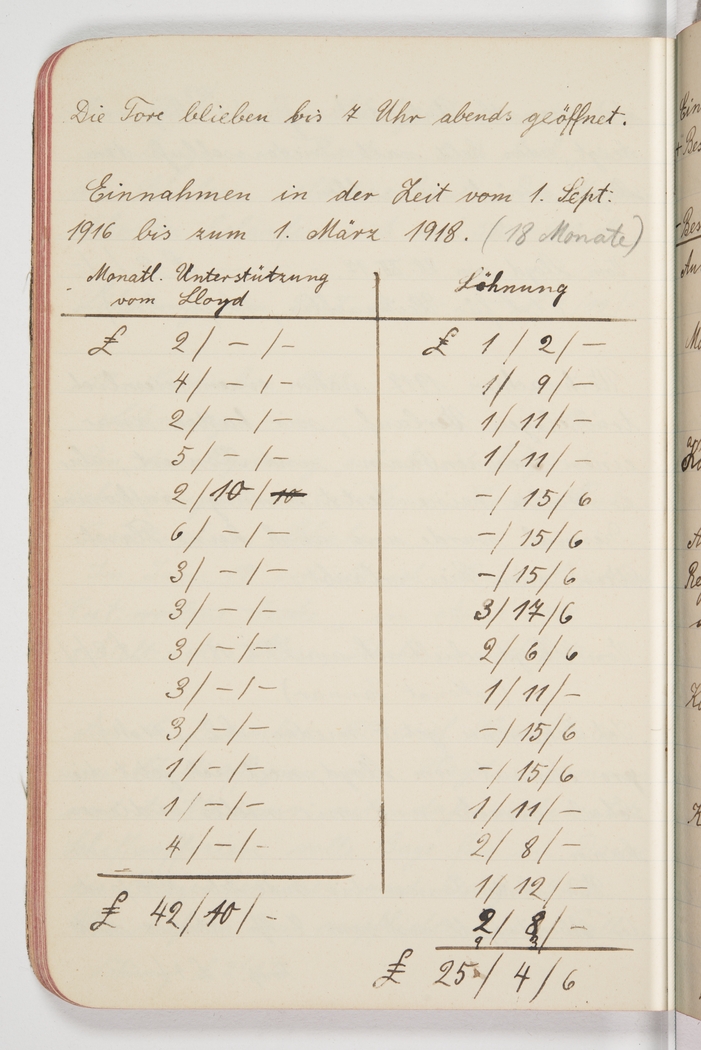 Die Tore blieben bis 7 Uhr abends geöffnet.
Einnahmen in der Zeit vom 1. Sept.
1916 bis zum 1. März 1918. (18 Monate)
Monatl. Unterstützung
vom Lloyd
£ 2/-/-
4/-/-
2/-/-
5/-/-
2/10/
6/-/-
3/-/-
3/-/-
3/-/-
3/-/-
3/-/-
1/-/-
1/-/-
4/-/-
£ 42/10/-
Löhnung
£ 1/2/-
1/9/-
1/11/-
1/11/-
-/15/6
-/15/6
-/15/6
3/17/6
2/6/6
1/11/-
-/15/6
-/15/6
1/11/-
2/8/-
1/12/-
2/8/-
£ 25/4/6